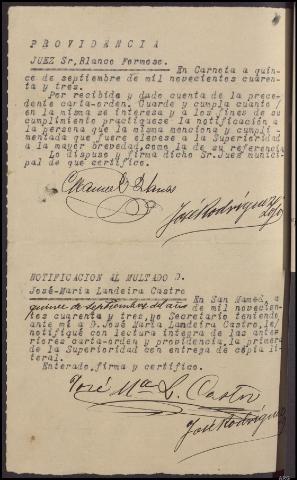 PROVIDENCIA
JUEZ Sr, Blanco Formoso.
En Carnota a quin-
ce de septiembre de mil novecientos cuaren-
ta y tres.
Por recibida y dado cuenta de la prece-
dente carta-orden. Guarde y cumpla cuanto/
en la misma se interesa y a los fines de su
cumplimiento practiquese la notificación a
la persona que la misma menciona y cumpli-
mentada que fuere elevese a la Superioridad
a la mayor brevedad como la de su referencia
Lo dispuso y firma dicho Sr. Juez munici-
pal de que certifico.
Manuel Blanco
José Rodriguez
NOTIFICACION AL MULTADO D.
José-Maria Landeira Castro
En San Mamed, a
quince de septiembre del año de mil novecien-
tos cuarenta y tres, yo Secretario teniendo
ante mi a D. José Maria Landeira Castro, le/
notifiqué con lectura integra de las ante-
riores carta-orden y providencia, la primera
de la Superioridad con entrega de cópia li-
teral.
Enterado, firma y certifico.
José Mª L. Castro
José Rodriguez